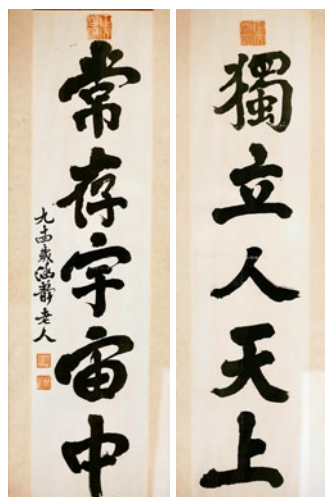 獨立人天上
常存宇宙中
九十四歲涵靜老人